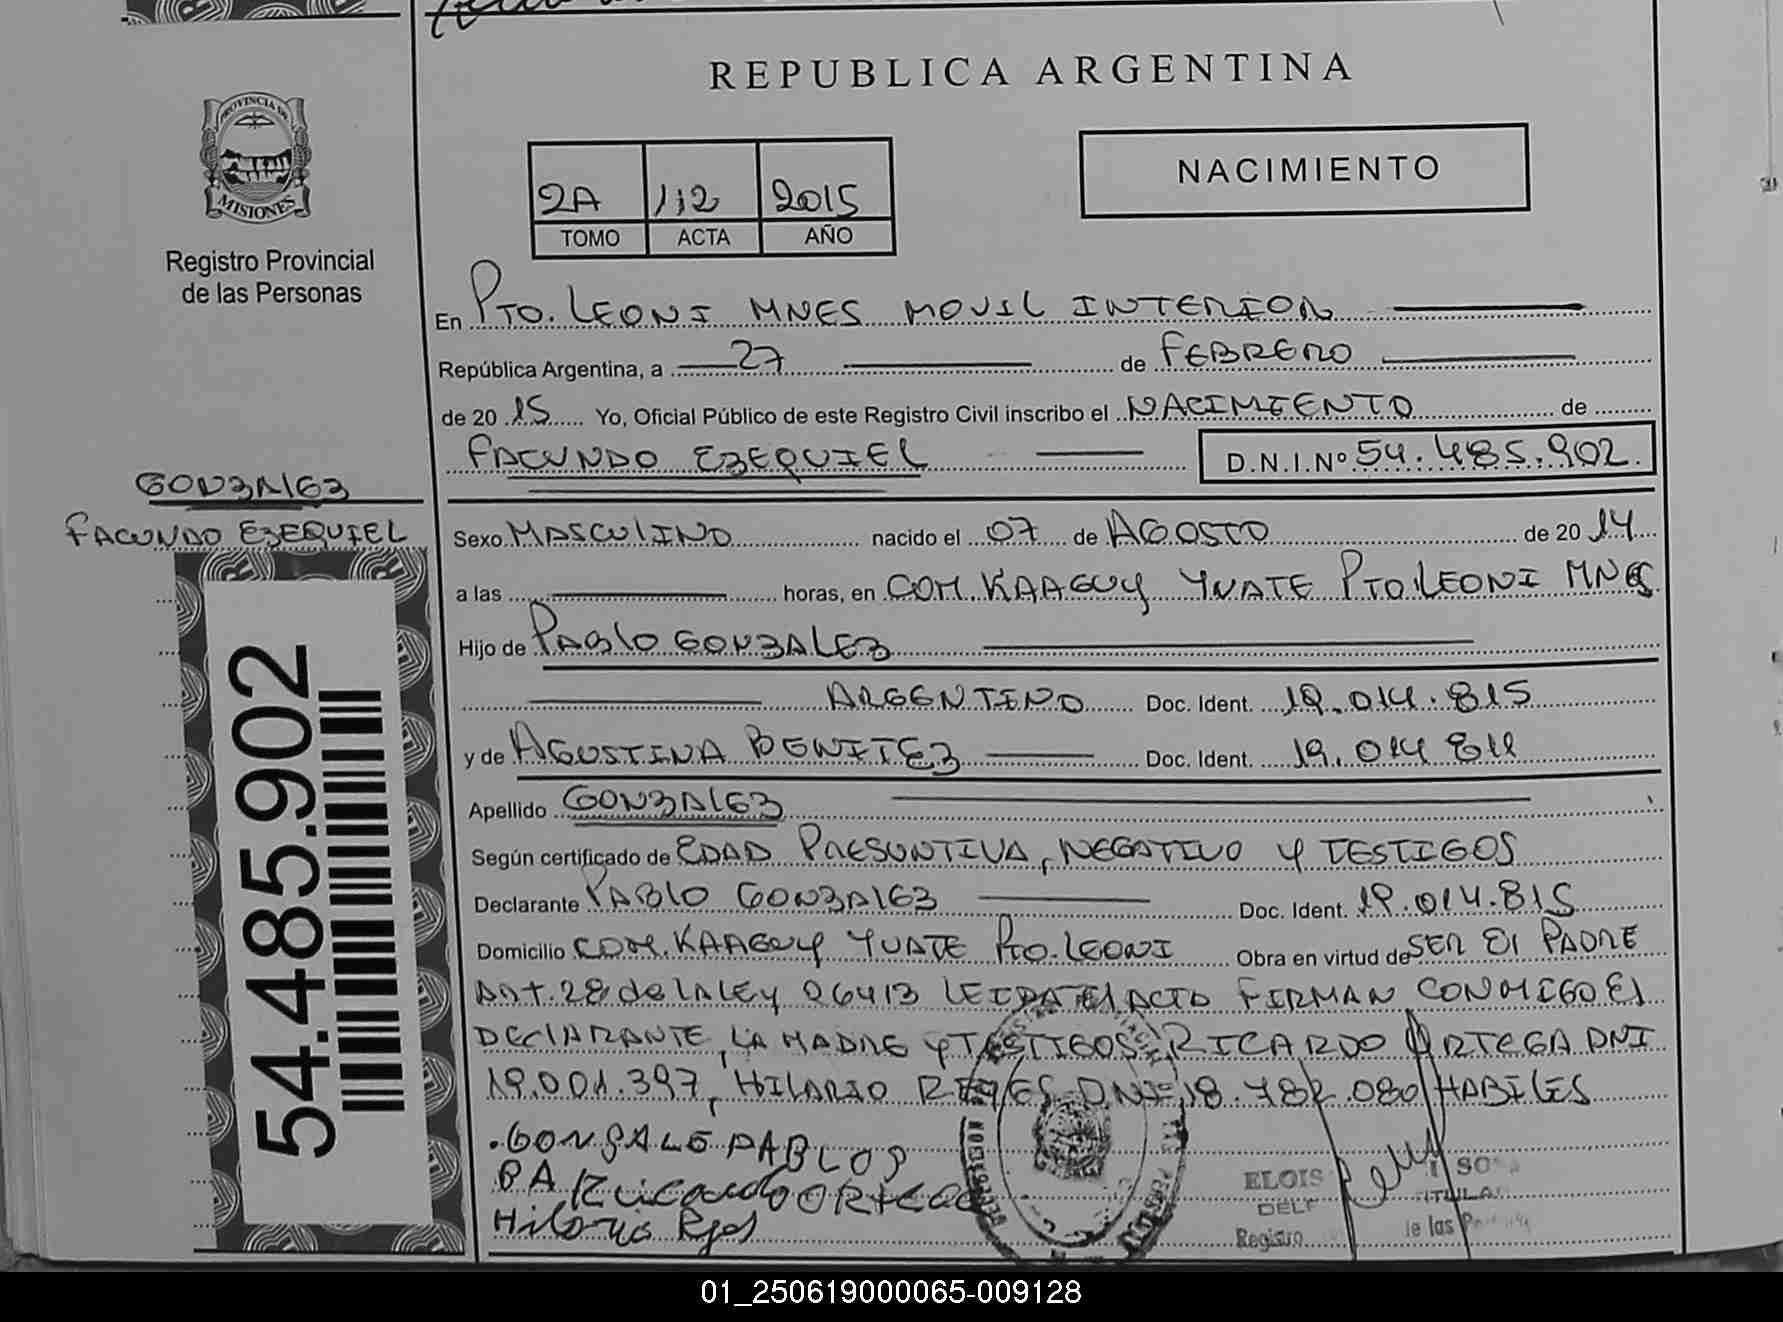 REPUBLICA ARGENTINA
PROVINCIA DE
MISIONES
Registro Provincial
de las Personas
2A 112 2015
TOMO ACTA AÑO
NACIMIENTO
En PTO. LEONI MNES MOVIL INTERIOR
República Argentina, a 27 de FEBRERO
de 20 15 Yo, Oficial Público de este Registro Civil inscribo el NACIMIENTO de
FACUNDO EZEQUIEL D.N.I.Nº 54.485.902.
GONZALEZ
FACUNDO EZEQUIEL
54.485.902
Sexo MASCULINO nacido el 07 de AGOSTO de 20 14
a las horas, en COM. KAAGUY YVATE PTO LEONI MNES
Hijo de PABLO GONZALEZ
ARGENTINO Doc. Ident. 19.014.815
y de AGUSTINA BENITEZ Doc. Ident. 19.014 811
Apellido GONZALEZ
Según certificado de EDAD PRESUNTIVA, NEGATIVO Y TESTIGOS
Declarante PABLO GONZALEZ Doc. Ident. 19.014.815
Domicilio COM. KAAGUY YVATE PTO. LEONI Obra en virtud de SER El PADRE
ART. 28 de LA LEY 26413 LEIDA El ACTO FIRMAN CONMIGO El
DECLARANTE, LA MADRE Y TESTIGOS RICARDO ORTEGA DNI
19.001.397, HILARIO REYES DNI 18.782.080 HABILES
GONSALE PABLO
BA Ricardo ORTEGA
Hilario
ELOIS SOSA
DELE TITULAR
Registro de las
01_250619000065-009128